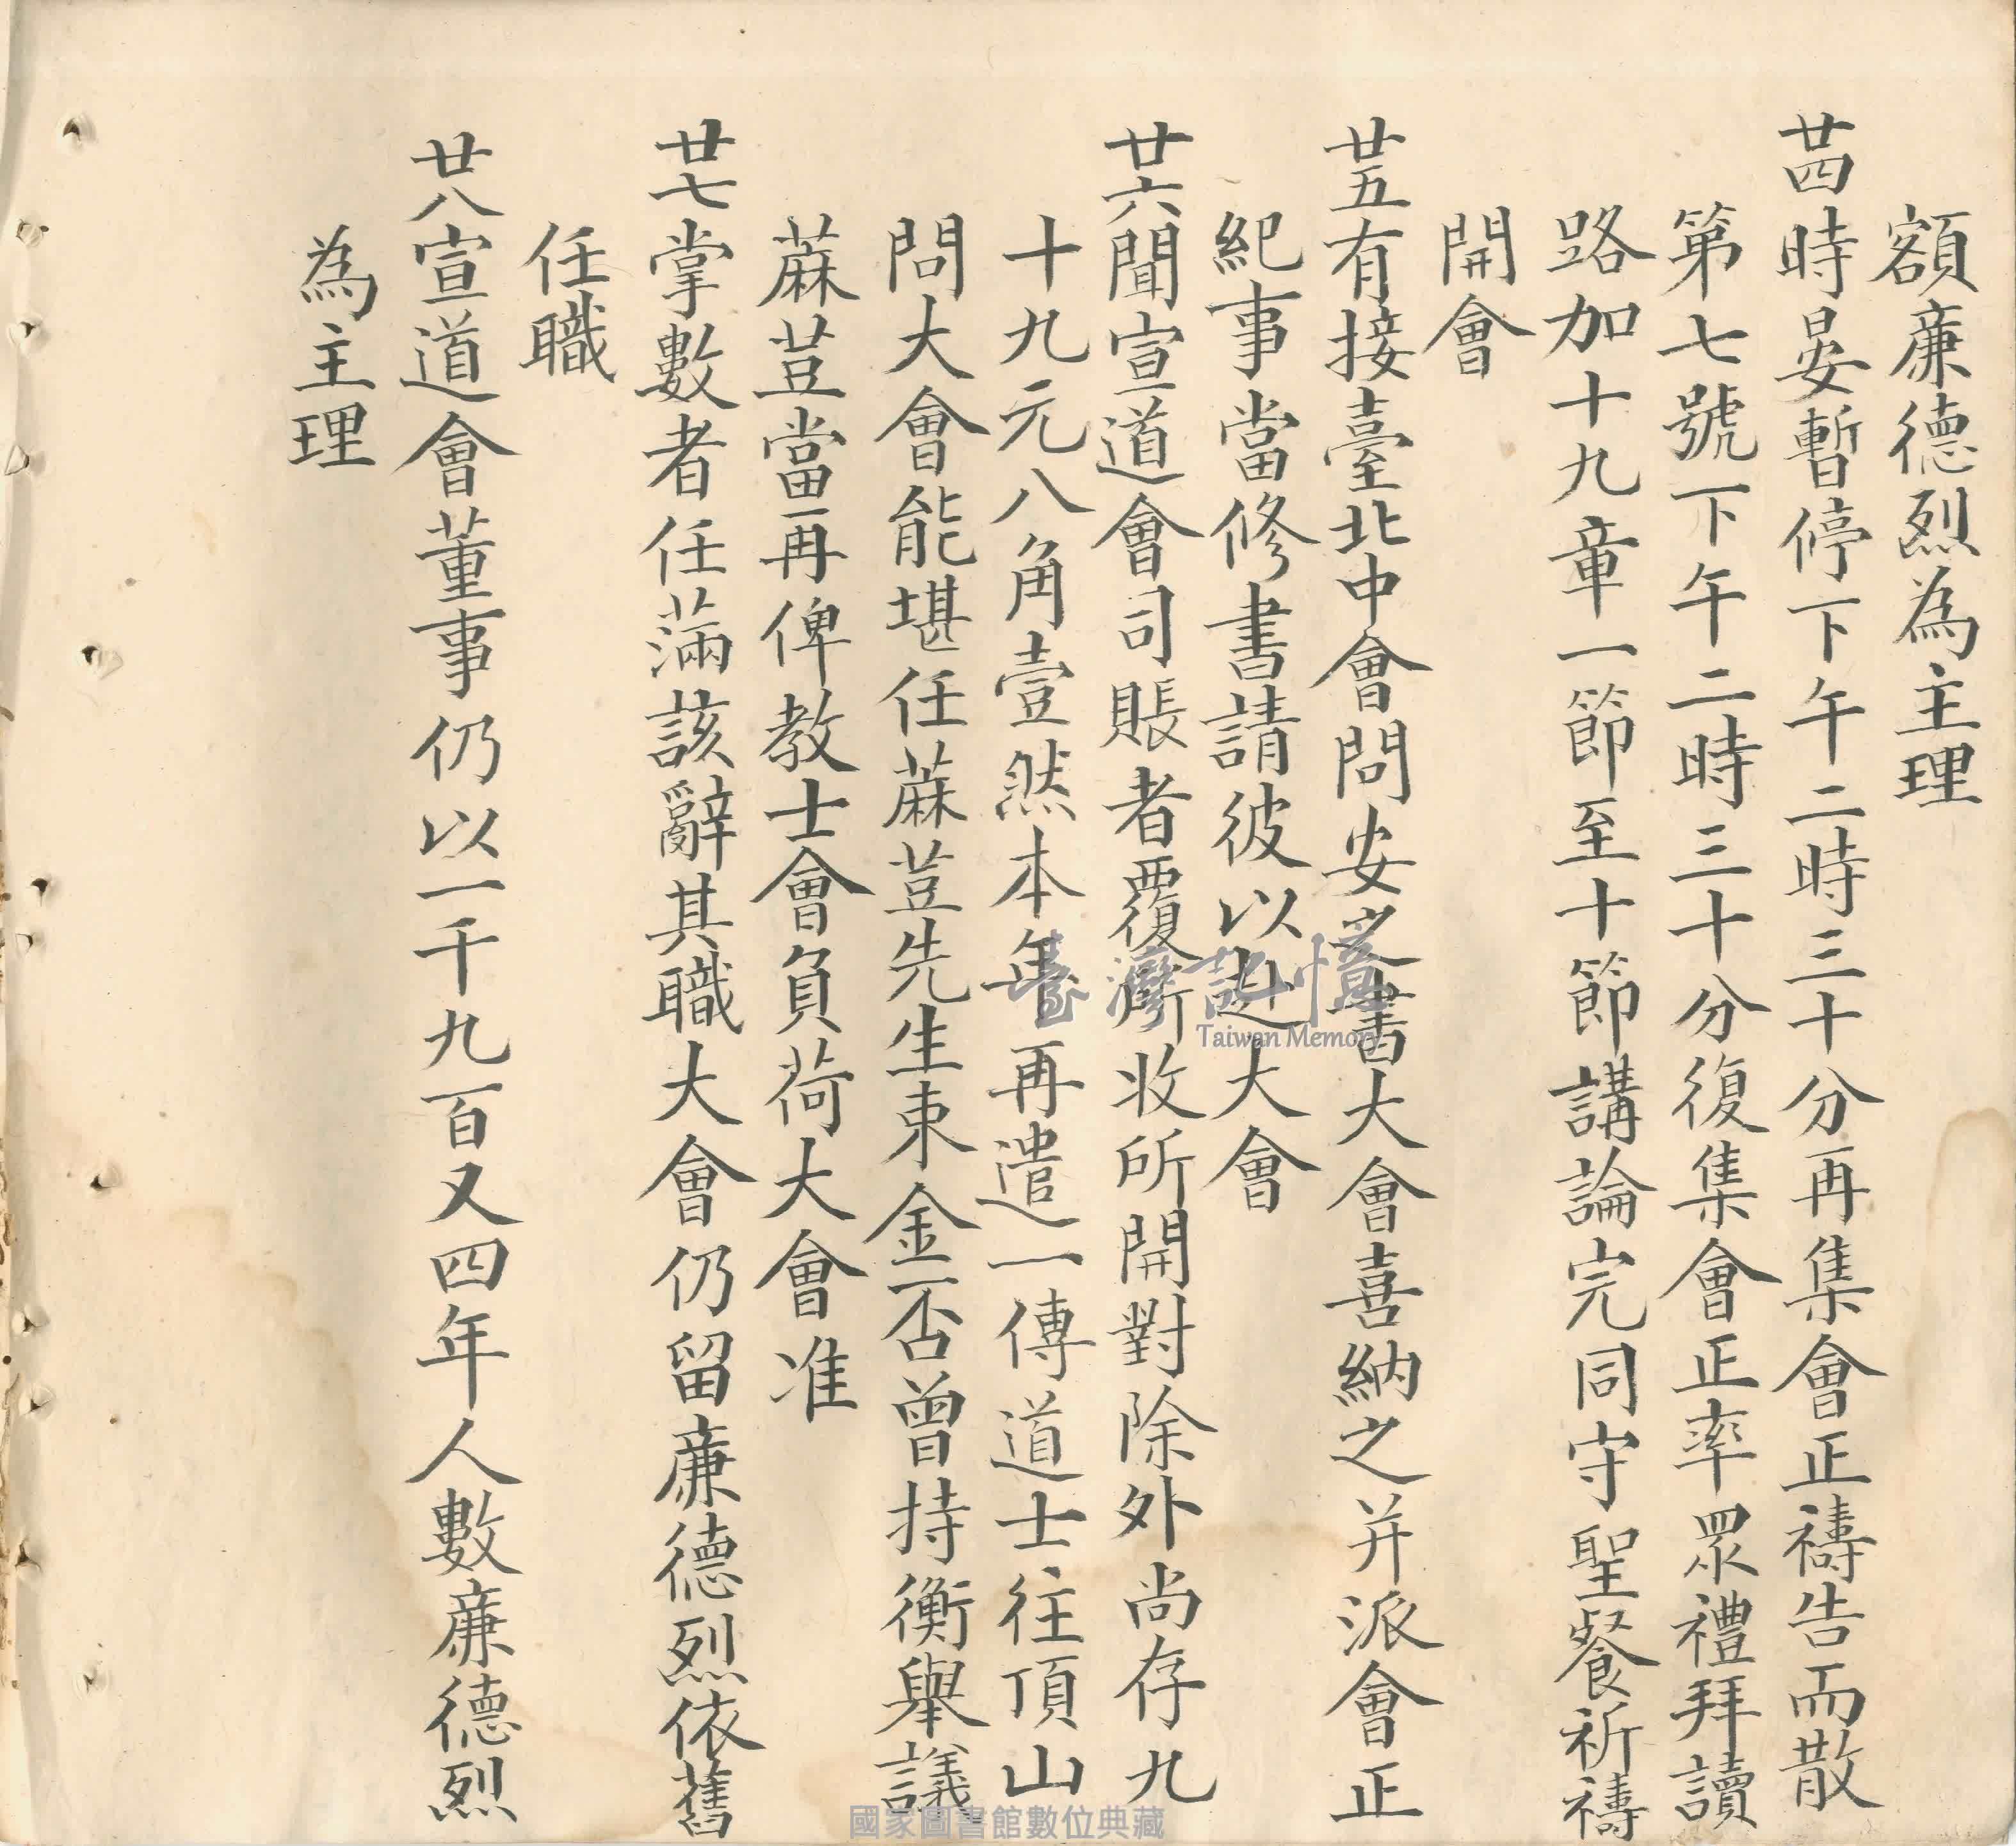 額廉德烈為主理
廿四時晏暫停下午二時三十分再集會正禱告而散
第七號下午二時三十分復集會正率眾禮拜讀
路加十九章一節至十節講論完同守聖餐祈禱
開會
廿五有接臺北中會問安之書大會喜納之并派會正
紀事當修書請彼以赴大會
廿六聞宣道會司賬者覆所收所開對除外尚存九
十九元八角壹然本年再遣一傳道士往頂山
問大會能堪任蔴荳先生束金否曾持衡舉議
蔴荳當再俾教士會負荷大會准
廿七掌數者任滿該辭其職大會仍留廉德烈依舊
任職
廿八宣道會董事仍以一千九百又四年人數廉德烈
為主理
臺灣記憶
Taiwan Memory
國家圖書館數位典藏